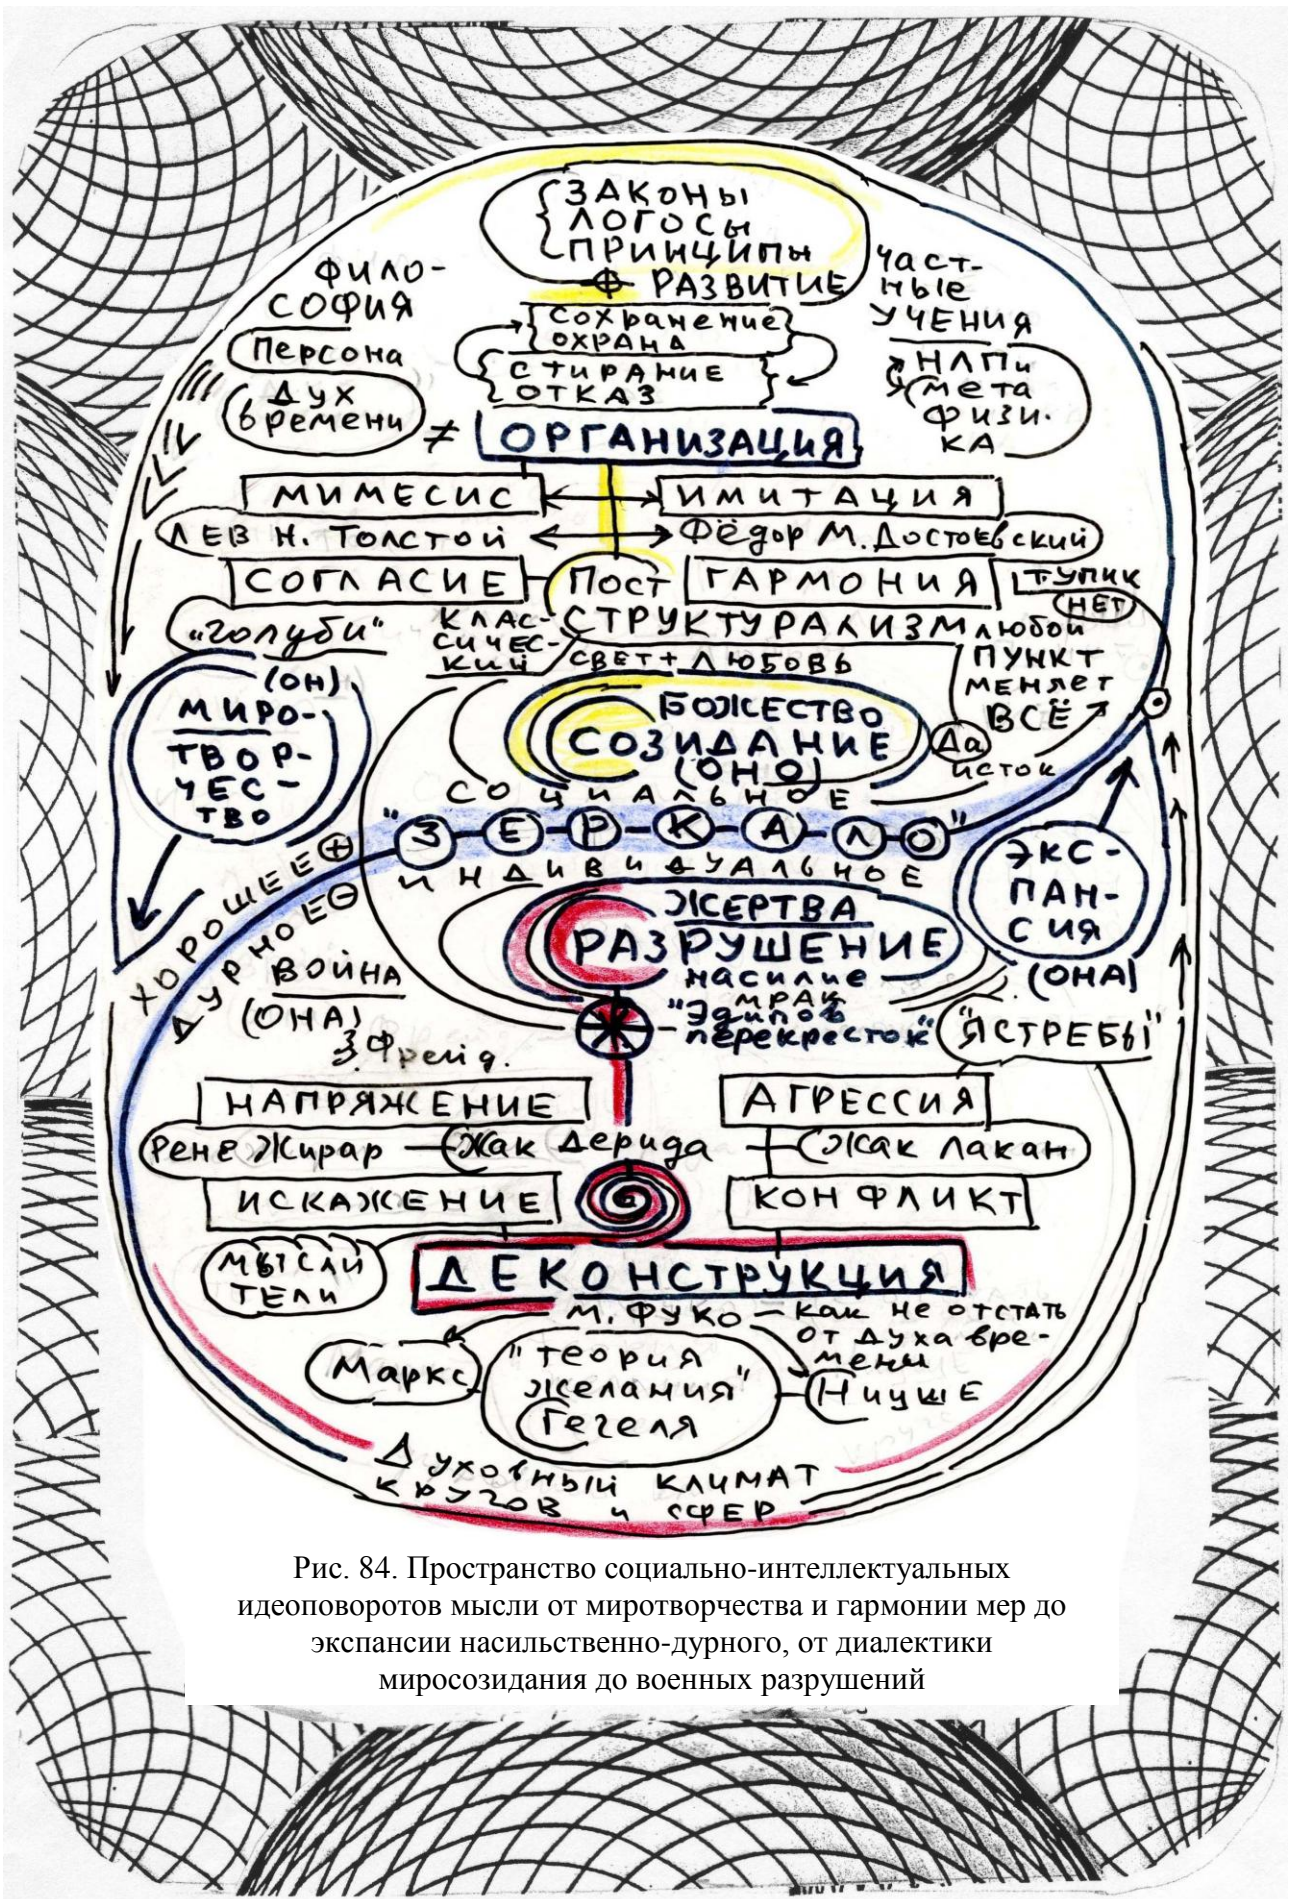 ЗАКОНЫ
ЛОГОСЫ
ПРИНЦИПЫ
РАЗВИТИЕ
ФИЛО-
СОФИЯ
Персона
Дух
времени
≠
сохранение
охрана
СТИРАНИЕ
ОТКАЗ
ЧАСТ-
ные
УЧЕНИЯ
НЛП и
мета
физи-
КА
ОРГАНИЗАЦИЯ
МИМЕСИС
ИМИТАЦИЯ
ЛЕВ Н. Толстой
Фёдор М. Достоевский
СОГЛАСИЕ
Пост
ГАРМОНИЯ
ТУПИК
НЕТ
"голуби"
КЛАС-
СИЧЕС-
КИЙ
СТРУКТУРАЛИЗМ
СВЕТ + ЛЮБОВЬ
любой
ПУНКТ
меняет
ВСЁ
Да
исток
(ОН)
МИРО-
ТВОР-
ЧЕС-
ТВО
БОЖЕСТВО
СОЗИДАНИЕ
(ОНО)
СОЦИАЛЬНОЕ
"З-Е-Р-К-А-Л-О"
ИНДИВИДУАЛЬНОЕ
ХОРОШЕЕ +
ДУРНОЕ -
ЭКС-
ПАН-
СИЯ
(ОНА)
ЖЕРТВА
РАЗРУШЕНИЕ
насилие
МРАК
"Эдипов
перекресток"
ВОЙНА
(ОНА)
З. Фрейд.
"ЯСТРЕБЫ"
НАПРЯЖЕНИЕ
АГРЕССИЯ
Рене Жирар — Жак Дерида
Жак Лакан
ИСКАЖЕНИЕ
КОНФЛИКТ
МЫСЛИ
ТЕЛИ
ДЕКОНСТРУКЦИЯ
М. ФУКО — как не отстать
от духа вре-
мени
Маркс
"теория
желания"
Гегеля
Ницше
Духовный климат
кругов и сфер
Рис. 84. Пространство социально-интеллектуальных
идеоповоротов мысли от миротворчества и гармонии мер до
экспансии насильственно-дурного, от диалектики
миросозидания до военных разрушений